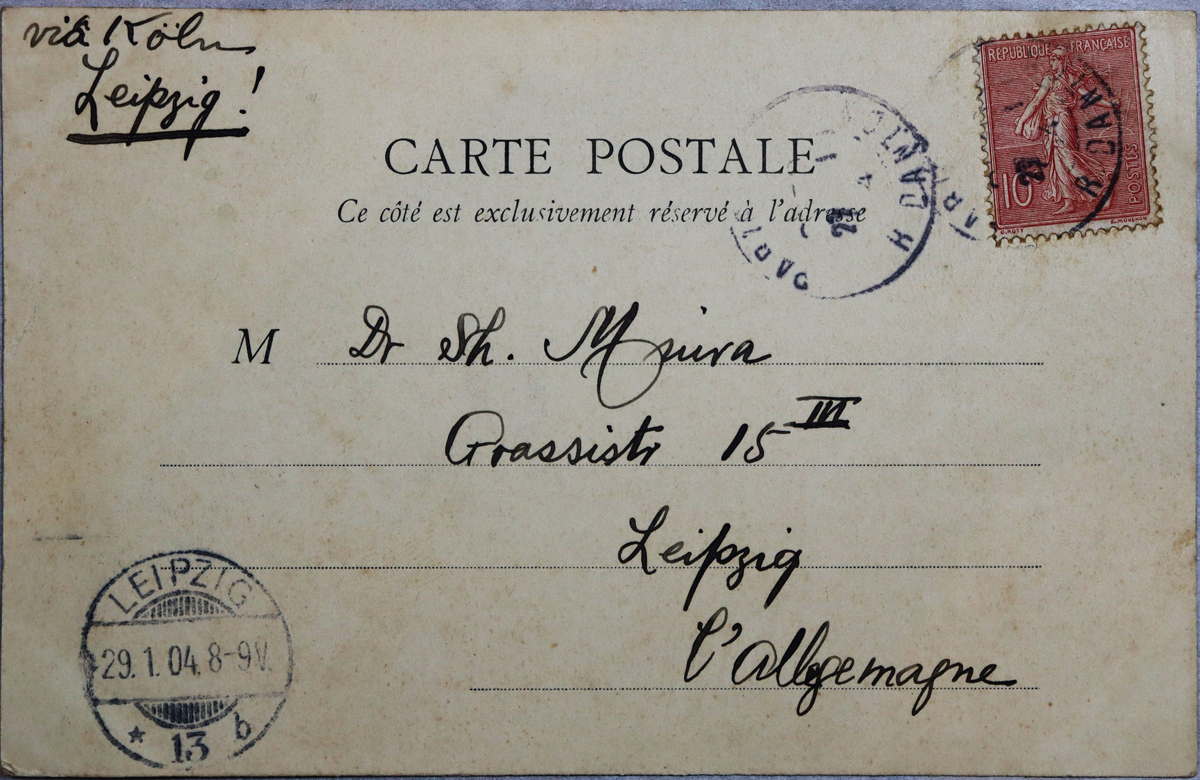 via Köln
Leipzig!
CARTE POSTALE
Ce côté est exclusivement réservé à l'adresse
RÉPUBLIQUE FRANÇAISE
10
POSTES
O.ROTY
E.MOUCHON
R DANTON
R DANT
M Dr Sh. Miura
Grassistr 15 III
Leipzig
l'Allgemagne
LEIPZIG
29.1.04. 8-9V.
* 13 b